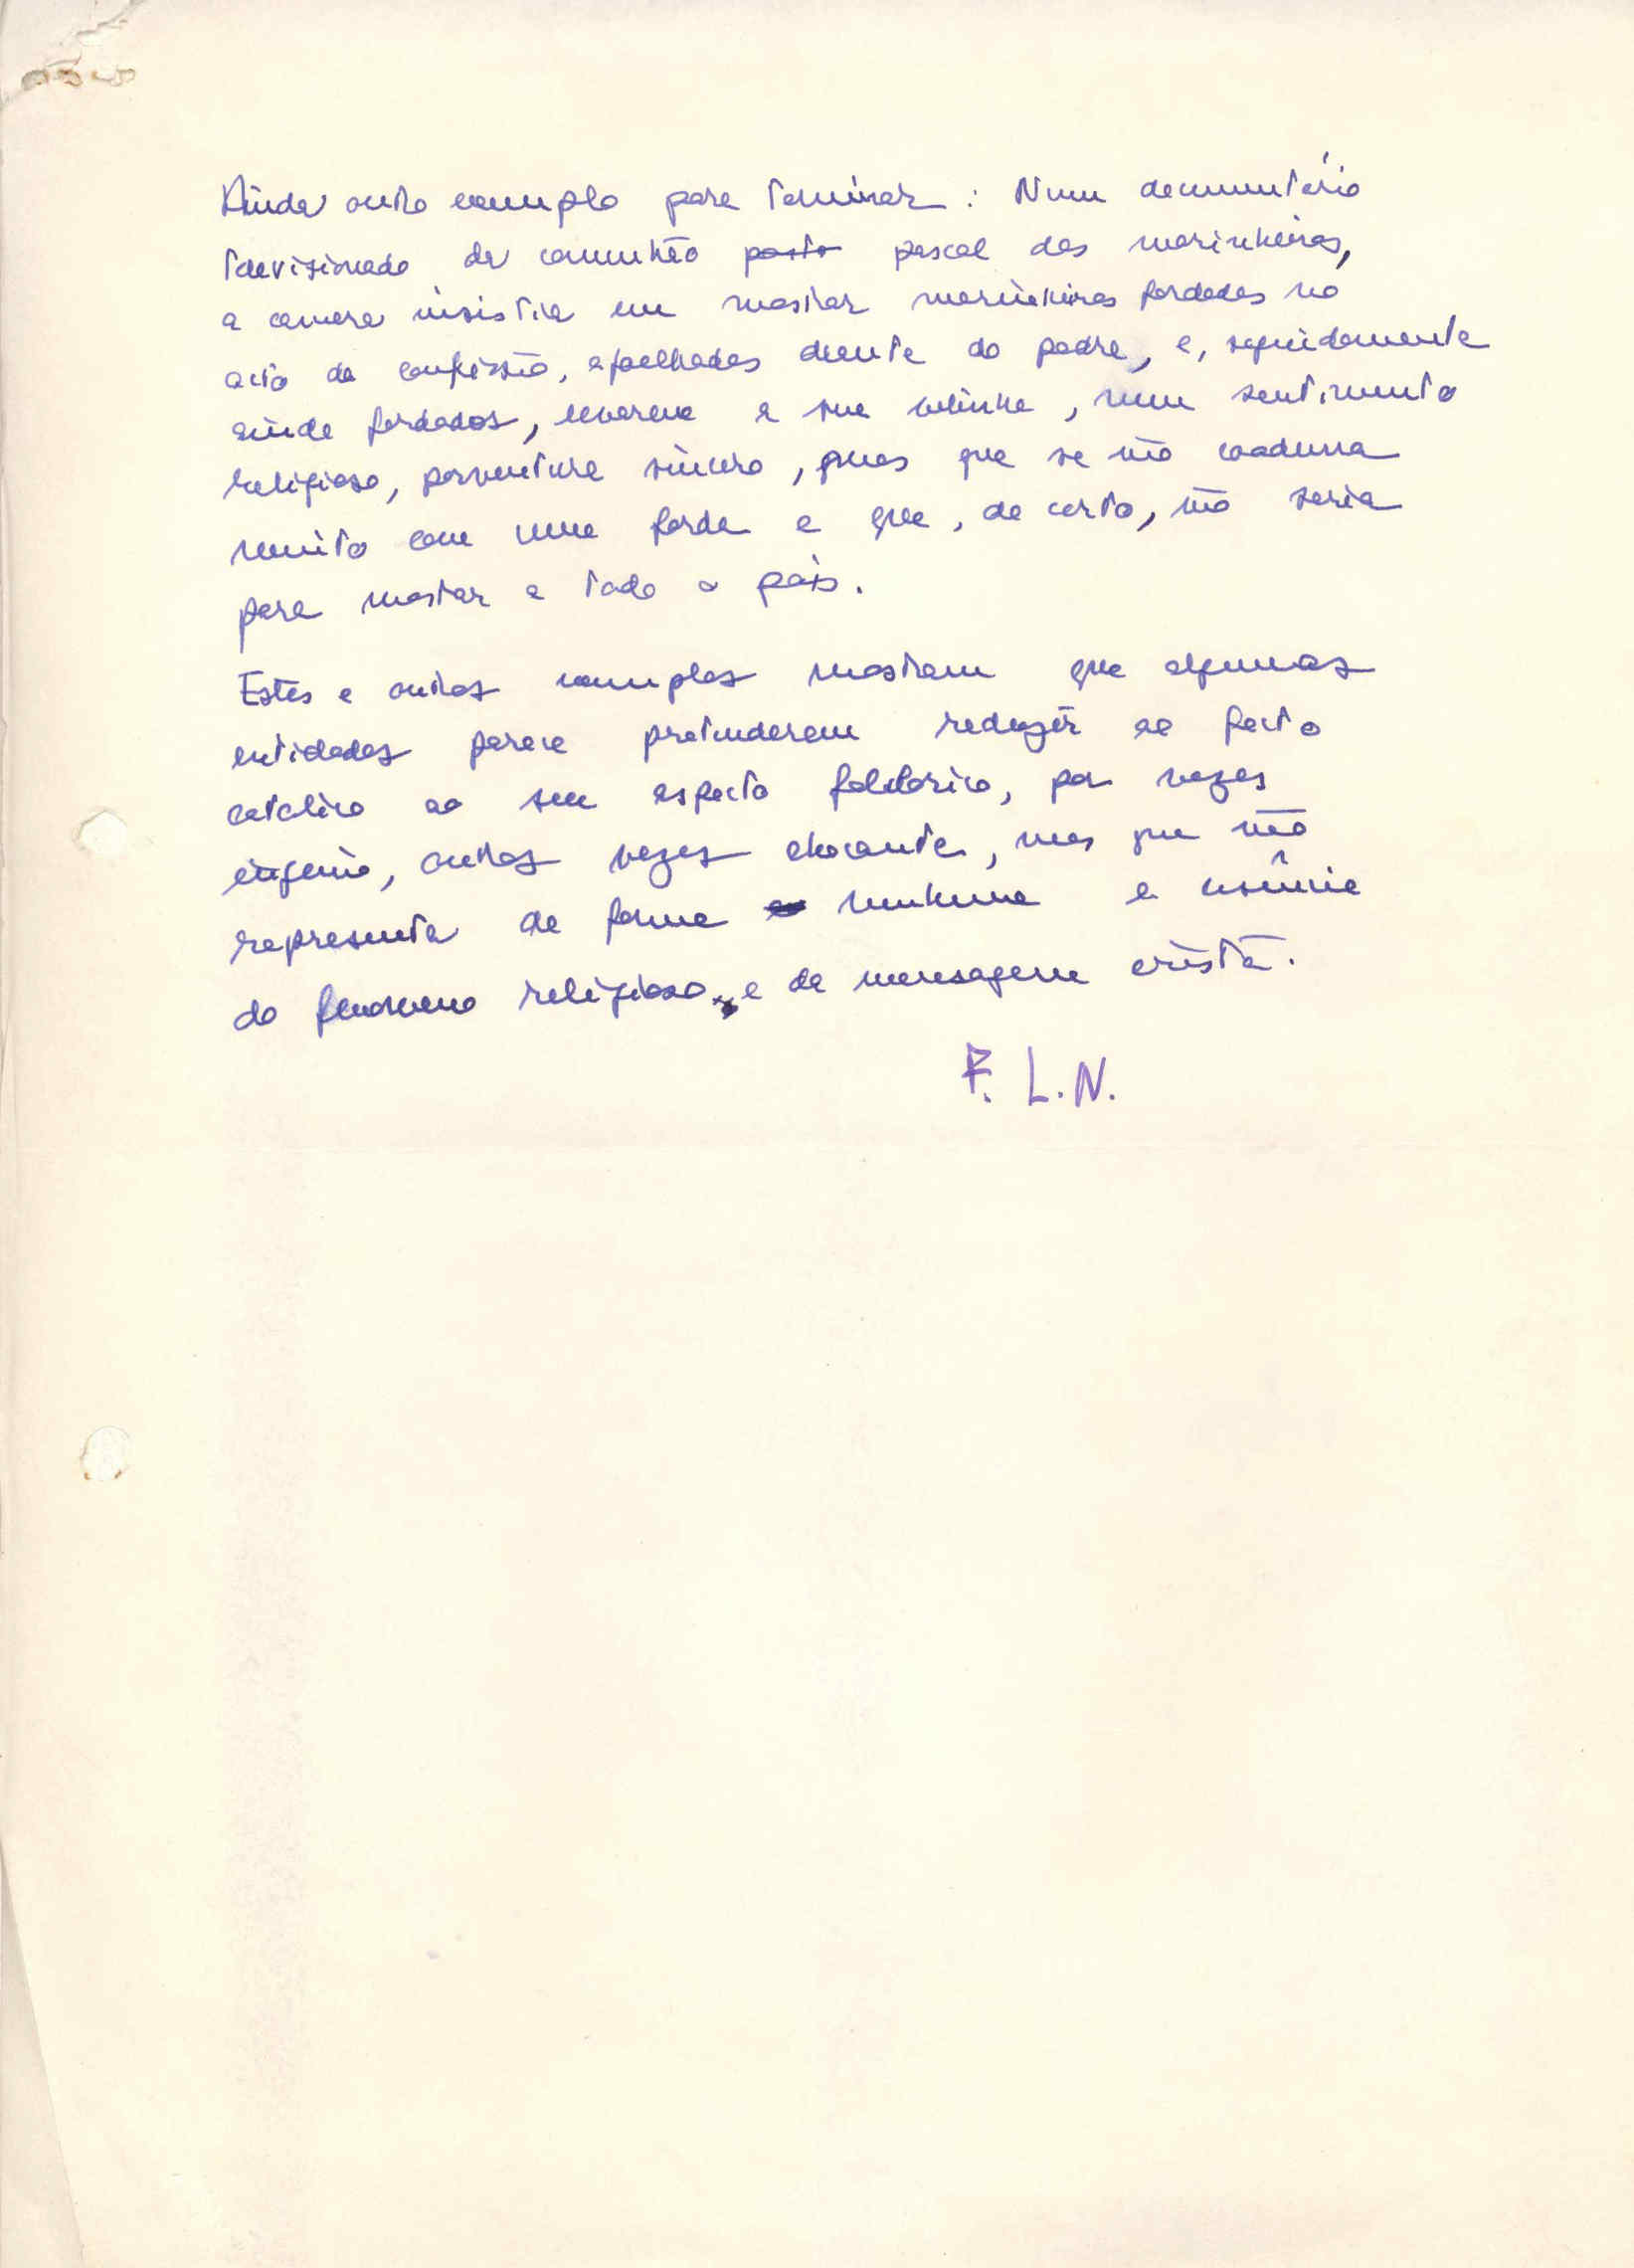 Ainda outro exemplo para terminar: Num documentário
televisionado da comunhão posto pascal dos marinheiros,
a camera insistia em mostrar marinheiros fardados no
acto da confissão, ajoelhados diante do padre, e, seguidamente
ainda fardados, levarem a sua velinha, num sentimento
religioso, porventura sincero, mas que se não coaduna
muito com uma farda e que, de certo, não seria
para mostar a todo o país.
Estes e outros exemplos mostram que algumas
entidades parece pretenderem reduzir ao facto
catolico ao seu aspecto folclorico, por vezes
ingenuo, outras vezes chocante, mas que não
representa de forma nenhuma a essência
do fenomeno religioso e da mensagem cristã.
F. L. N.